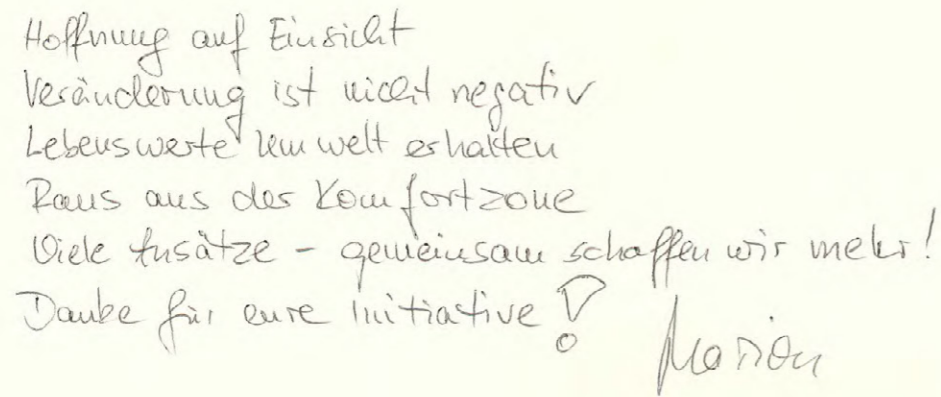 Hoffnung auf Einsicht
Veränderung ist nicht negativ
Lebenswerte Umwelt erhalten
Raus aus der Komfortzone
Viele Ansätze – gemeinsam schaffen wir mehr!
Danke für eure Initiative!
Marion